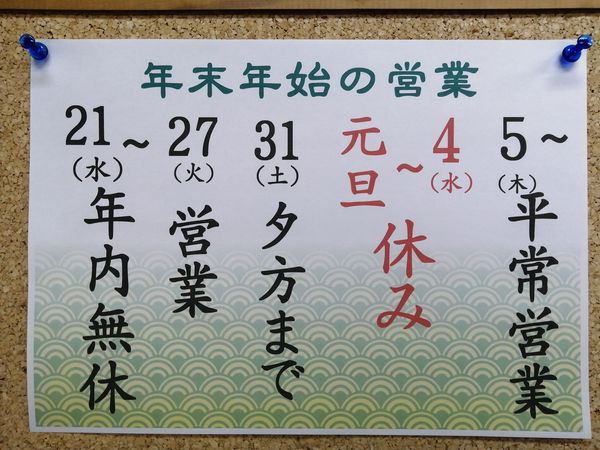 年末年始の営業
21(水)~年内無休
27(火)営業
31(土)夕方まで
元旦~4(水)休み
5~(木)平常営業